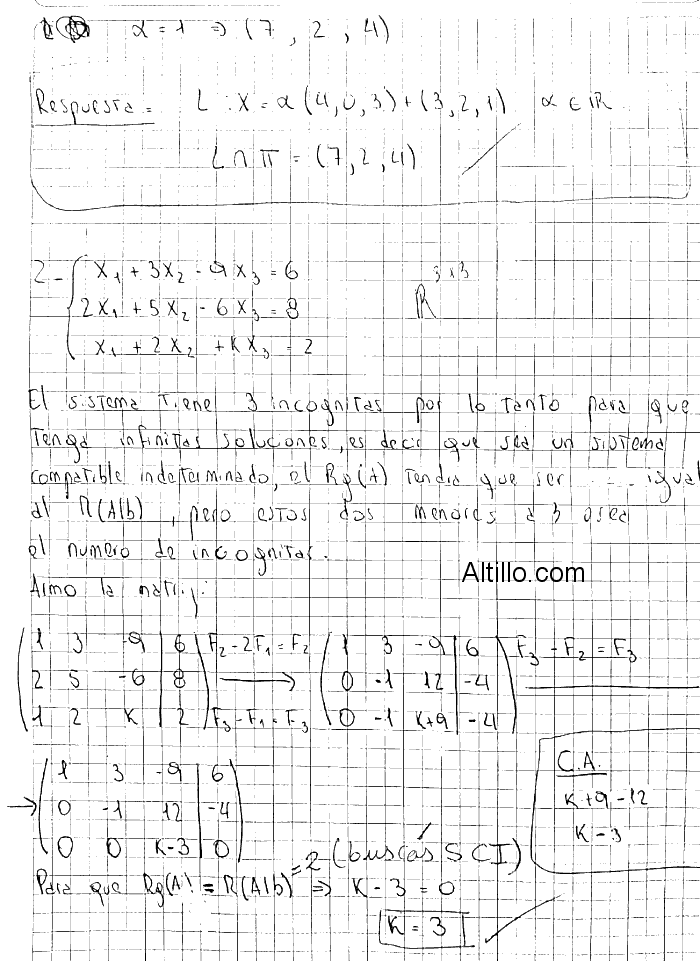 α = 1 ⇒ (7, 2, 4)
Respuesta = L : X = α(4,0,3) + (3,2,1) α ∈ IR
L ∩ π = (7,2,4)
2- { X₁ + 3X₂ - 9X₃ = 6
2X₁ + 5X₂ - 6X₃ = 8
X₁ + 2X₂ + KX₃ = 2
R³ˣ³
El sistema tiene 3 incognitas por lo tanto para que
tenga infinitas soluciones, es decir que sea un sistema
compatible indeterminado, el Rg(A) tendria que ser igual
al R(A|b), pero estos dos menores a 3 osea
el numero de incognitas.
Altillo.com
Armo la matriz:
( 1 3 -9 | 6 ) F₂ - 2F₁ = F₂ ( 1 3 -9 | 6 ) F₃ - F₂ = F₃
( 2 5 -6 | 8 ) → ( 0 -1 12 | -4 )
( 1 2 K | 2 ) F₃ - F₁ = F₃ ( 0 -1 K+9 | -4 )
( 1 3 -9 | 6 )
→ ( 0 -1 12 | -4 )
( 0 0 K-3 | 0 )
C.A.
K+9-12
K-3
Para que Rg(A) = R(A|b) = 2 (buscás SCI) ⇒ K - 3 = 0
K = 3